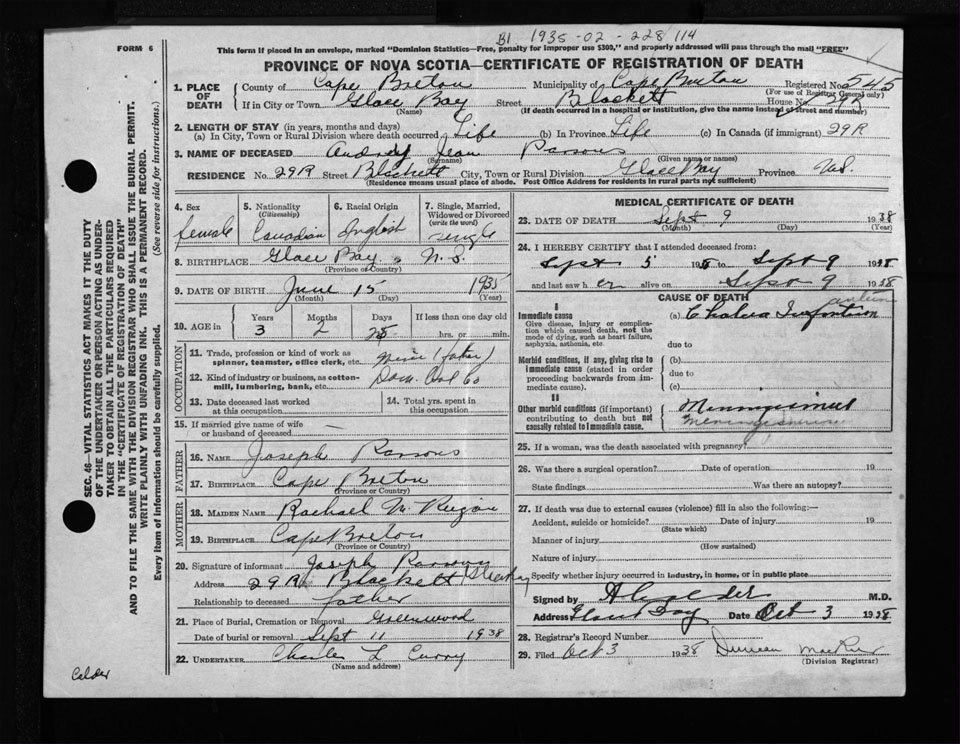 B1 1935-02-228/114
FORM 6
This form if placed in an envelope, marked "Dominion Statistics—Free, penalty for improper use $300," and properly addressed will pass through the mail "FREE"
PROVINCE OF NOVA SCOTIA—CERTIFICATE OF REGISTRATION OF DEATH
1. PLACE OF DEATH
County of Cape Breton Municipality of Cape Breton Registered No. 545
(For use of Registrar General only)
If in City or Town Glace Bay Street Blackett House No. 29R
(Name) (If death occurred in a hospital or institution, give the name instead of street and number)
2. LENGTH OF STAY (in years, months and days)
(a) In City, Town or Rural Division where death occurred Life (b) In Province Life (c) In Canada (if immigrant) 29R
3. NAME OF DECEASED Audrey Jean Parsons
(Surname) (Given name or names)
RESIDENCE No. 29R Street Blackett City, Town or Rural Division Glace Bay Province N.S.
(Residence means usual place of abode. Post Office Address for residents in rural parts not sufficient)
4. Sex
female
5. Nationality
(Citizenship)
Canadian
6. Racial Origin
English
7. Single, Married, Widowed or Divorced
(write the word)
Single
8. BIRTHPLACE Glace Bay, N.S.
(Province or Country)
9. DATE OF BIRTH June 15 1935
(Month) (Day) (Year)
10. AGE in
Years Months Days If less than one day old
3 2 25 hrs. or min.
OCCUPATION
11. Trade, profession or kind of work as spinner, teamster, office clerk, etc. (father)
12. Kind of industry or business, as cotton-mill, lumbering, bank, etc. Dom. Coal Co
13. Date deceased last worked at this occupation
14. Total yrs. spent in this occupation
15. If married give name of wife or husband of deceased —
FATHER
16. NAME Joseph Parsons
17. BIRTHPLACE Cape Breton
(Province or Country)
MOTHER
18. MAIDEN NAME Rachael M.
19. BIRTHPLACE Cape Breton
(Province or Country)
20. Signature of informant Joseph Parsons
Address 29R Blackett St
Relationship to deceased father
21. Place of Burial, Cremation or Removal Greenwood
Date of burial or removal Sept 11 1938
22. UNDERTAKER Charles L Curry
(Name and address)
MEDICAL CERTIFICATE OF DEATH
23. DATE OF DEATH Sept 9 1938
(Month) (Day) (Year)
24. I HEREBY CERTIFY that I attended deceased from:
Sept 5 1938 to Sept 9 1938
and last saw her alive on Sept 9 1938
CAUSE OF DEATH
I
Immediate cause (a) Cholera Infantum
Give disease, injury or complication which caused death, not the mode of dying, such as heart failure, asphyxia, asthenia, etc.
due to
Morbid conditions, if any, giving rise to immediate cause (stated in order proceeding backwards from immediate cause).
(b)
due to
(c)
II
Other morbid conditions (if important) contributing to death but not causally related to immediate cause.
25. If a woman, was the death associated with pregnancy?
26. Was there a surgical operation? Date of operation 19
State findings Was there an autopsy?
27. If death was due to external causes (violence) fill in also the following:—
Accident, suicide or homicide? Date of injury 19
(State which)
Manner of injury
(How sustained)
Nature of injury
Specify whether injury occurred in industry, in home, or in public place
Signed by A Calder M.D.
Address Glace Bay Date Oct 3 1938
28. Registrar's Record Number
29. Filed Oct 3 1938 Duncan
(Division Registrar)
SEC. 46—VITAL STATISTICS ACT MAKES IT THE DUTY
OF THE UNDERTAKER OR PERSON ACTING AS UNDERTAKER TO OBTAIN ALL THE PARTICULARS REQUIRED
IN THE "CERTIFICATE OF REGISTRATION OF DEATH"
AND TO FILE THE SAME WITH THE DIVISION REGISTRAR WHO SHALL ISSUE THE BURIAL PERMIT.
WRITE PLAINLY WITH UNFADING INK. THIS IS A PERMANENT RECORD.
Every item of information should be carefully supplied. (See reverse side for instructions.)
Calder